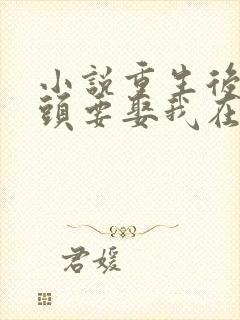 小說重生後
頭要娶我在
君媛